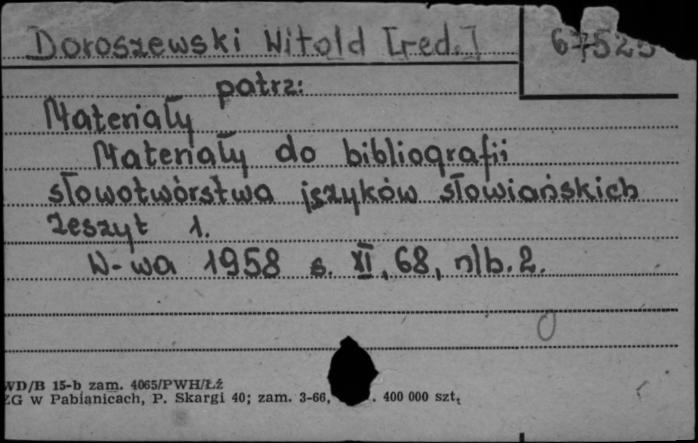 Doroszewski Witold [red.]
67525
patrz:
Materiały
Materiały do bibliografii
słowotwórstwa języków słowiańskich
Zeszyt 1.
W-wa 1958 s. XI, 68, nlb. 2.
WD/B 15-b zam. 4065/PWH/Łż
ZG w Pabianicach, P. Skargi 40; zam. 3-66, . 400 000 szt.